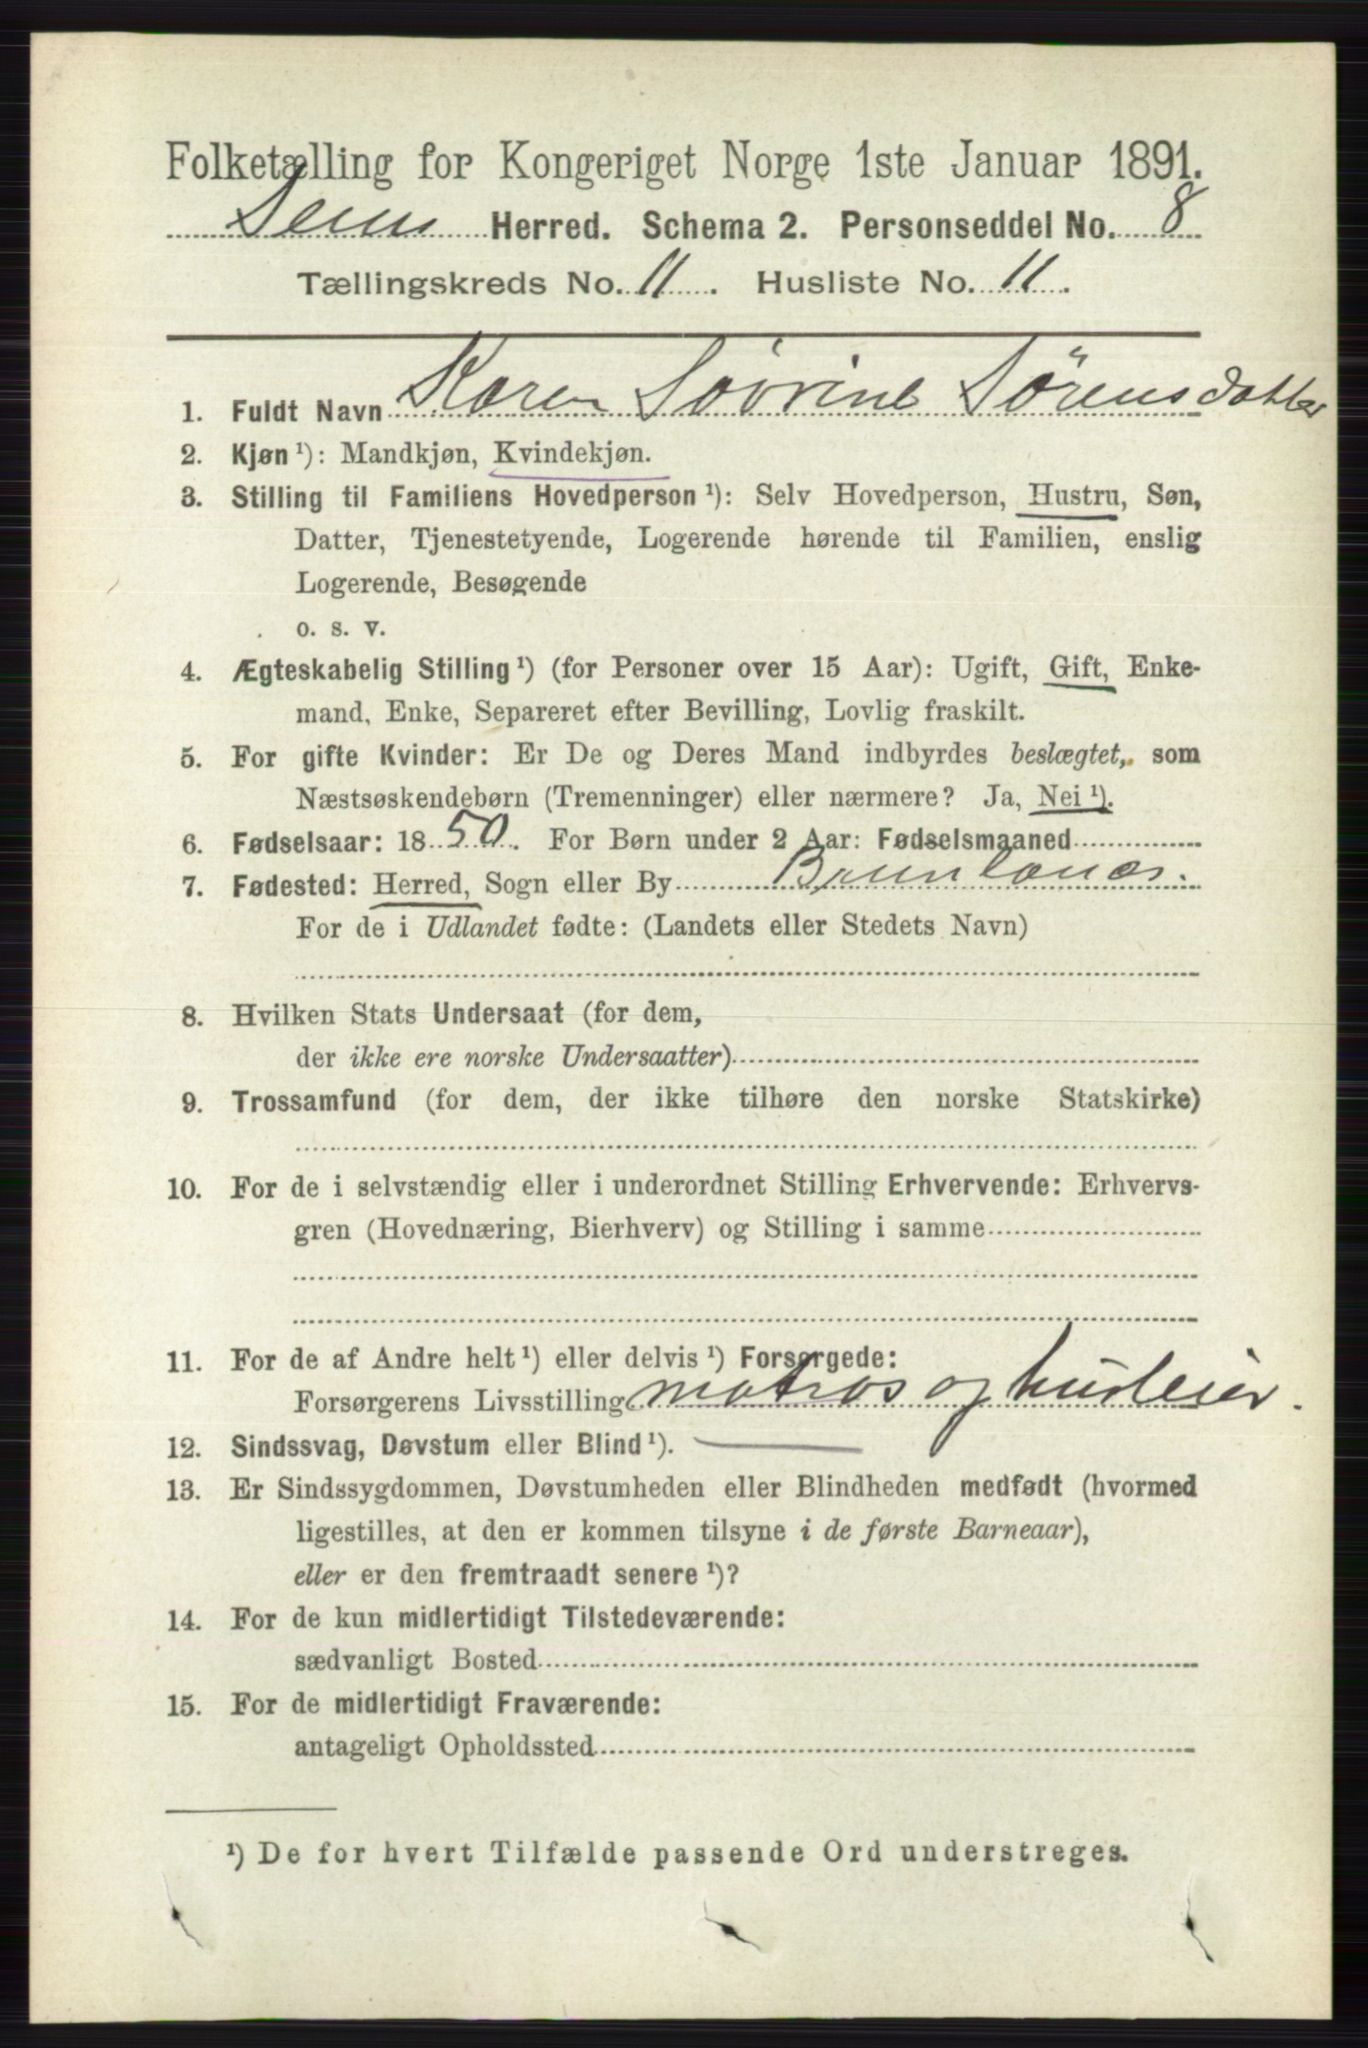 Folketælling for Kongeriget Norge 1ste Januar 1891.
Sem Herred. Schema 2. Personseddel No. 8
Tællingskreds No. 11. Husliste No. 11.
1. Fuldt Navn Karen Sørensdatter
2. Kjøn ¹): Mandkjøn, Kvindekjøn.
3. Stilling til Familiens Hovedperson ¹): Selv Hovedperson, Hustru, Søn,
Datter, Tjenestetyende, Logerende hørende til Familien, enslig
Logerende, Besøgende
o. s. v.
4. Ægteskabelig Stilling ¹) (for Personer over 15 Aar): Ugift, Gift, Enke-
mand, Enke, Separeret efter Bevilling, Lovlig fraskilt.
5. For gifte Kvinder: Er De og Deres Mand indbyrdes beslægtet, som
Næstsøskendebørn (Tremenninger) eller nærmere? Ja, Nei ¹).
6. Fødselsaar: 1850. For Børn under 2 Aar: Fødselsmaaned
7. Fødested: Herred, Sogn eller By Brunlanæs.
For de i Udlandet fødte: (Landets eller Stedets Navn)
8. Hvilken Stats Undersaat (for dem,
der ikke ere norske Undersaatter)
9. Trossamfund (for dem, der ikke tilhøre den norske Statskirke)
10. For de i selvstændig eller i underordnet Stilling Erhvervende: Erhvervs-
gren (Hovednæring, Bierhverv) og Stilling i samme
11. For de af Andre helt ¹) eller delvis ¹) Forsørgede:
Forsørgerens Livsstilling matros og husleier.
12. Sindssvag, Døvstum eller Blind ¹).
13. Er Sindssygdommen, Døvstumheden eller Blindheden medfødt (hvormed
ligestilles, at den er kommen tilsyne i de første Barneaar),
eller er den fremtraadt senere ¹)?
14. For de kun midlertidigt Tilstedeværende:
sædvanligt Bosted
15. For de midlertidigt Fraværende:
antageligt Opholdssted
¹) De for hvert Tilfælde passende Ord understreges.